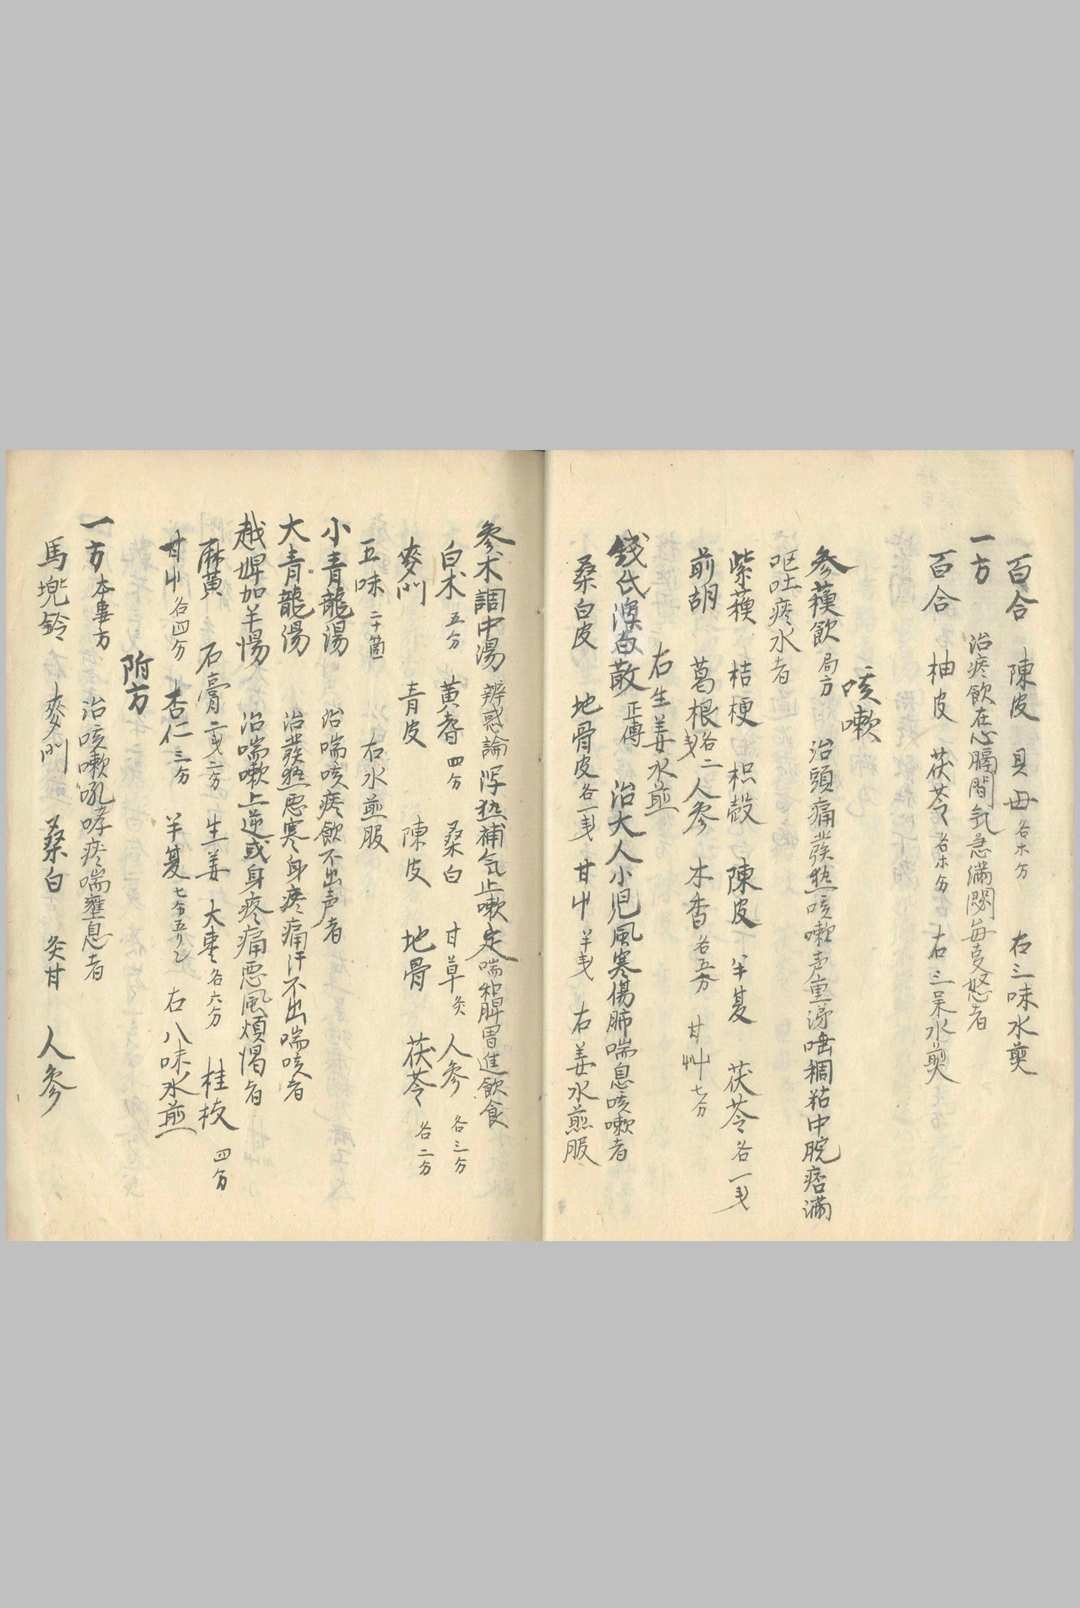 百合 陳皮 貝母 各六分 右三味水煎
一方 治痰飲在心膈間気急満悶每憂怒者
百合 柚皮 茯苓 各六分 右三味水煎
咳嗽
参蘓飲 局方 治頭痛發熱咳嗽声重涕唾稠粘中脘痞満
呕吐痰水者
紫蘓 桔梗 枳殻 陳皮 半夏 茯苓 各一戔
前胡 葛根 各二戔 人参 木香 各五分 甘艸 七分
右生姜水煎
錢氏瀉白散 正傳 治大人小児風寒傷肺喘息咳嗽者
桑白皮 地骨皮 各一戔 甘艸 半戔 右姜水煎服
参术調中湯 辨惑論 泻热補気止嗽定喘和脾胃進飲食
白术 五分 黄耆 四分 桑白 甘草 灸 人参 各三分
麥門 青皮 陳皮 地骨 茯苓 各二分
五味 二十箇 右水煎服
小青龍湯 治喘咳痰飲不出声者
大青龍湯 治發热悪寒身疼痛汗不出喘咳者
越婢加半湯 治喘嗽上逆或身疼痛悪風煩渇者
麻黄 石膏 二戔二分 生姜 大枣 各六分 桂枝 四分
甘艸 各四分 杏仁 三分 半夏 七分五リン 右八味水煎
附方
一方 本事方 治咳嗽吼哮痰喘壅息者
馬兜鈴 麥門 桑白 灸甘 人参